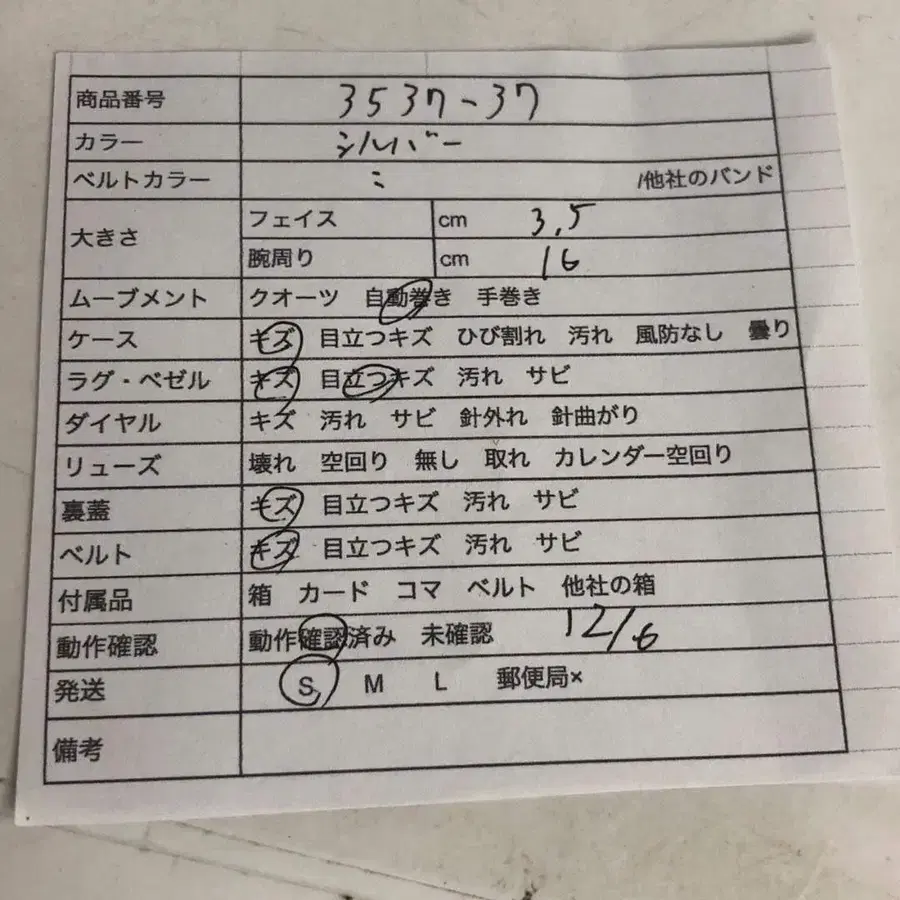 商品番号 3537-37
カラー シルバー
ベルトカラー 〃 /他社のバンド
大きさ フェイス cm 3.5
腕周り cm 16
ムーブメント クオーツ 自動巻き 手巻き
ケース キズ 目立つキズ ひび割れ 汚れ 風防なし 曇り
ラグ・ベゼル キズ 目立つキズ 汚れ サビ
ダイヤル キズ 汚れ サビ 針外れ 針曲がり
リューズ 壊れ 空回り 無し 取れ カレンダー空回り
裏蓋 キズ 目立つキズ 汚れ サビ
ベルト キズ 目立つキズ 汚れ サビ
付属品 箱 カード コマ ベルト 他社の箱
動作確認 動作確認済み 未確認 12/6
発送 S M L 郵便局×
備考